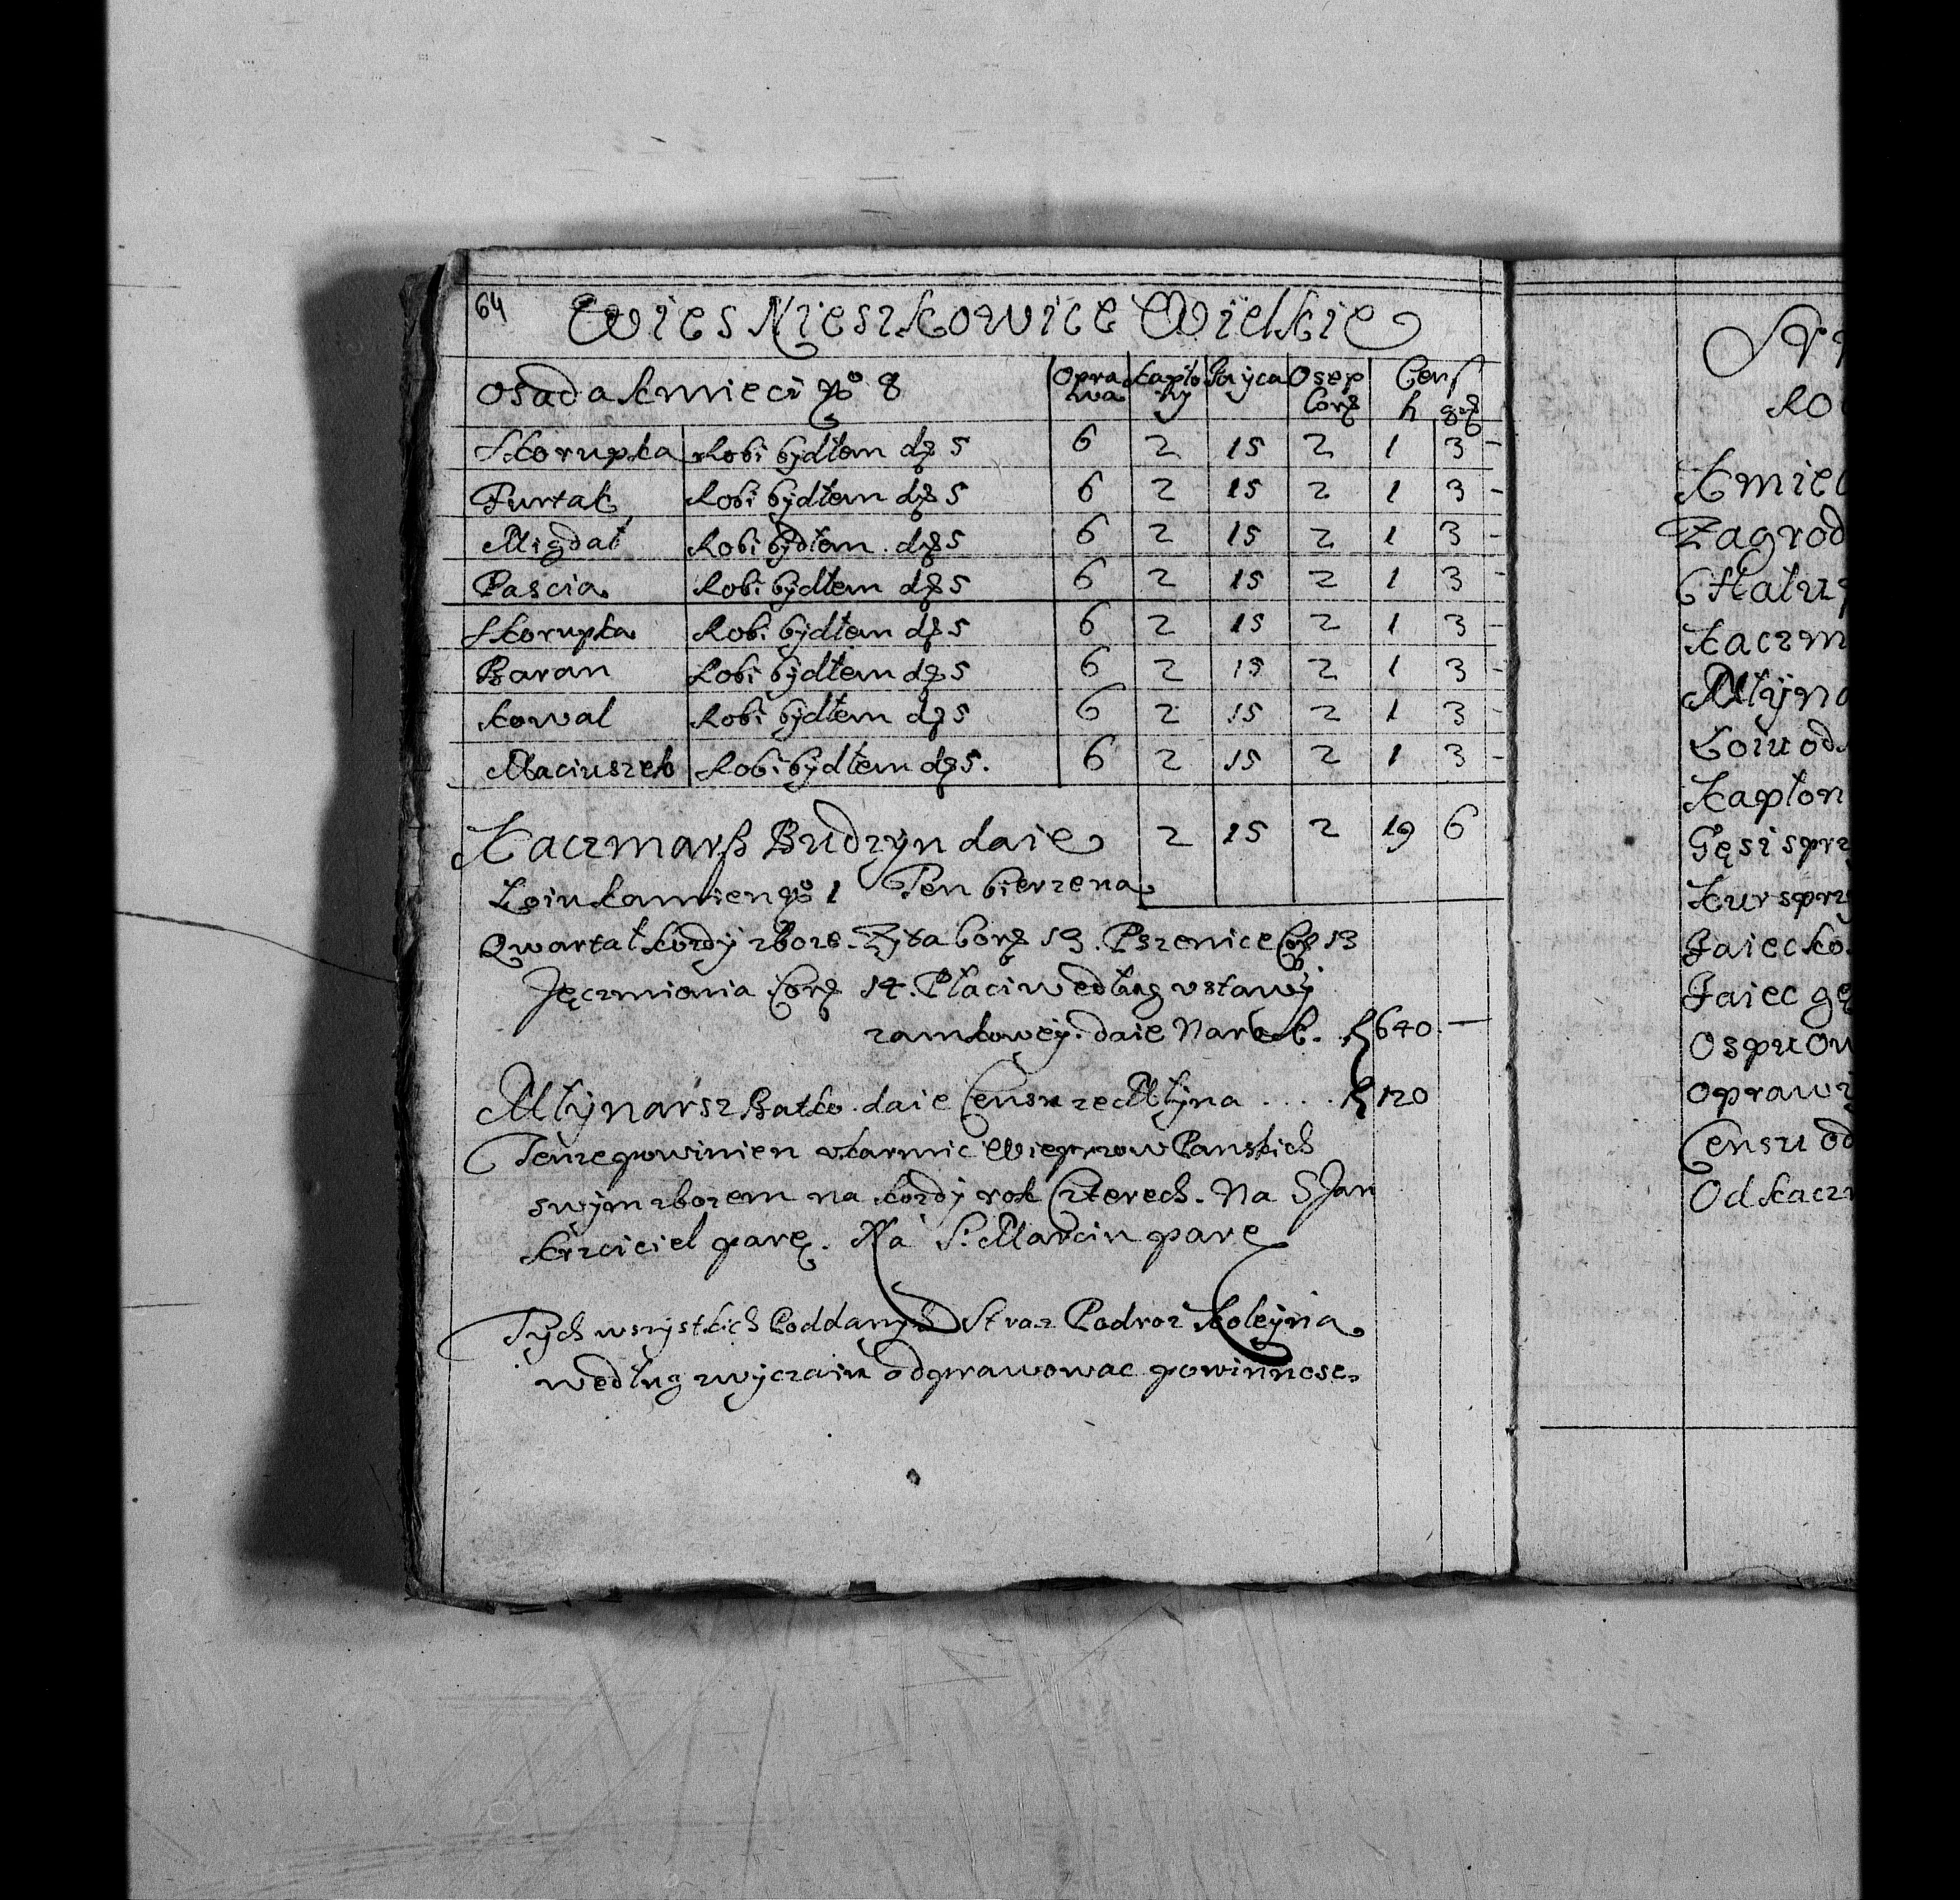 64
Wies Nieszkowice Wielkie
Osada kmieci No 8 Opra wa Kapło ny Jayca Osep Corz Cens f grz
Skorupka Robi bydłem dz 5 6 2 15 2 1 3 -
Furtak Robi bydłem dz 5 6 2 15 2 1 3 -
Migdał Robi bydłem dz 5 6 2 15 2 1 3 -
Pascia Robi bydłem dz 5 6 2 15 2 1 3 -
Skorupka Robi bydłem dz 5 6 2 15 2 1 3 -
Baran Robi bydłem dz 5 6 2 15 2 1 3 -
Kowal Robi bydłem dz 5 6 2 15 2 1 3 -
Maciuszek Robi bydłem dz 5. 6 2 15 2 1 3 -
Kaczmarz Budzyn daie 2 15 2 19 6
Łoiu kamien No 1 Ten bierze na
Qwartał kozdy zboze. Zyta Corz 13. Pszenice Corz 13
Jęczmienia Corz 14. Płaci według ustawy
zamkowey. daie Na rok. f 640 —
Młynarsz Batko. daie Censu ze Młyna .... f 120
Tenze powinien ukarmic Wieprzow Panskich
swym zbozem na kozdy rok Czterech. Na S Jan
krzciciel parę. Na S. Marcin parę
Tych wszystkich Poddanych Straz Podroz Koleyna
według zwyczaiu odprawowac powinnosc.
Kmiec
Zagrod
Kaczm
Młyna
Łoiu od
Kapłon
Gęsi sprz
Kur sprz
Jaiec ko
Jaiec gę
Ospu Ow
Oprawi
Censu od
Od Kacz